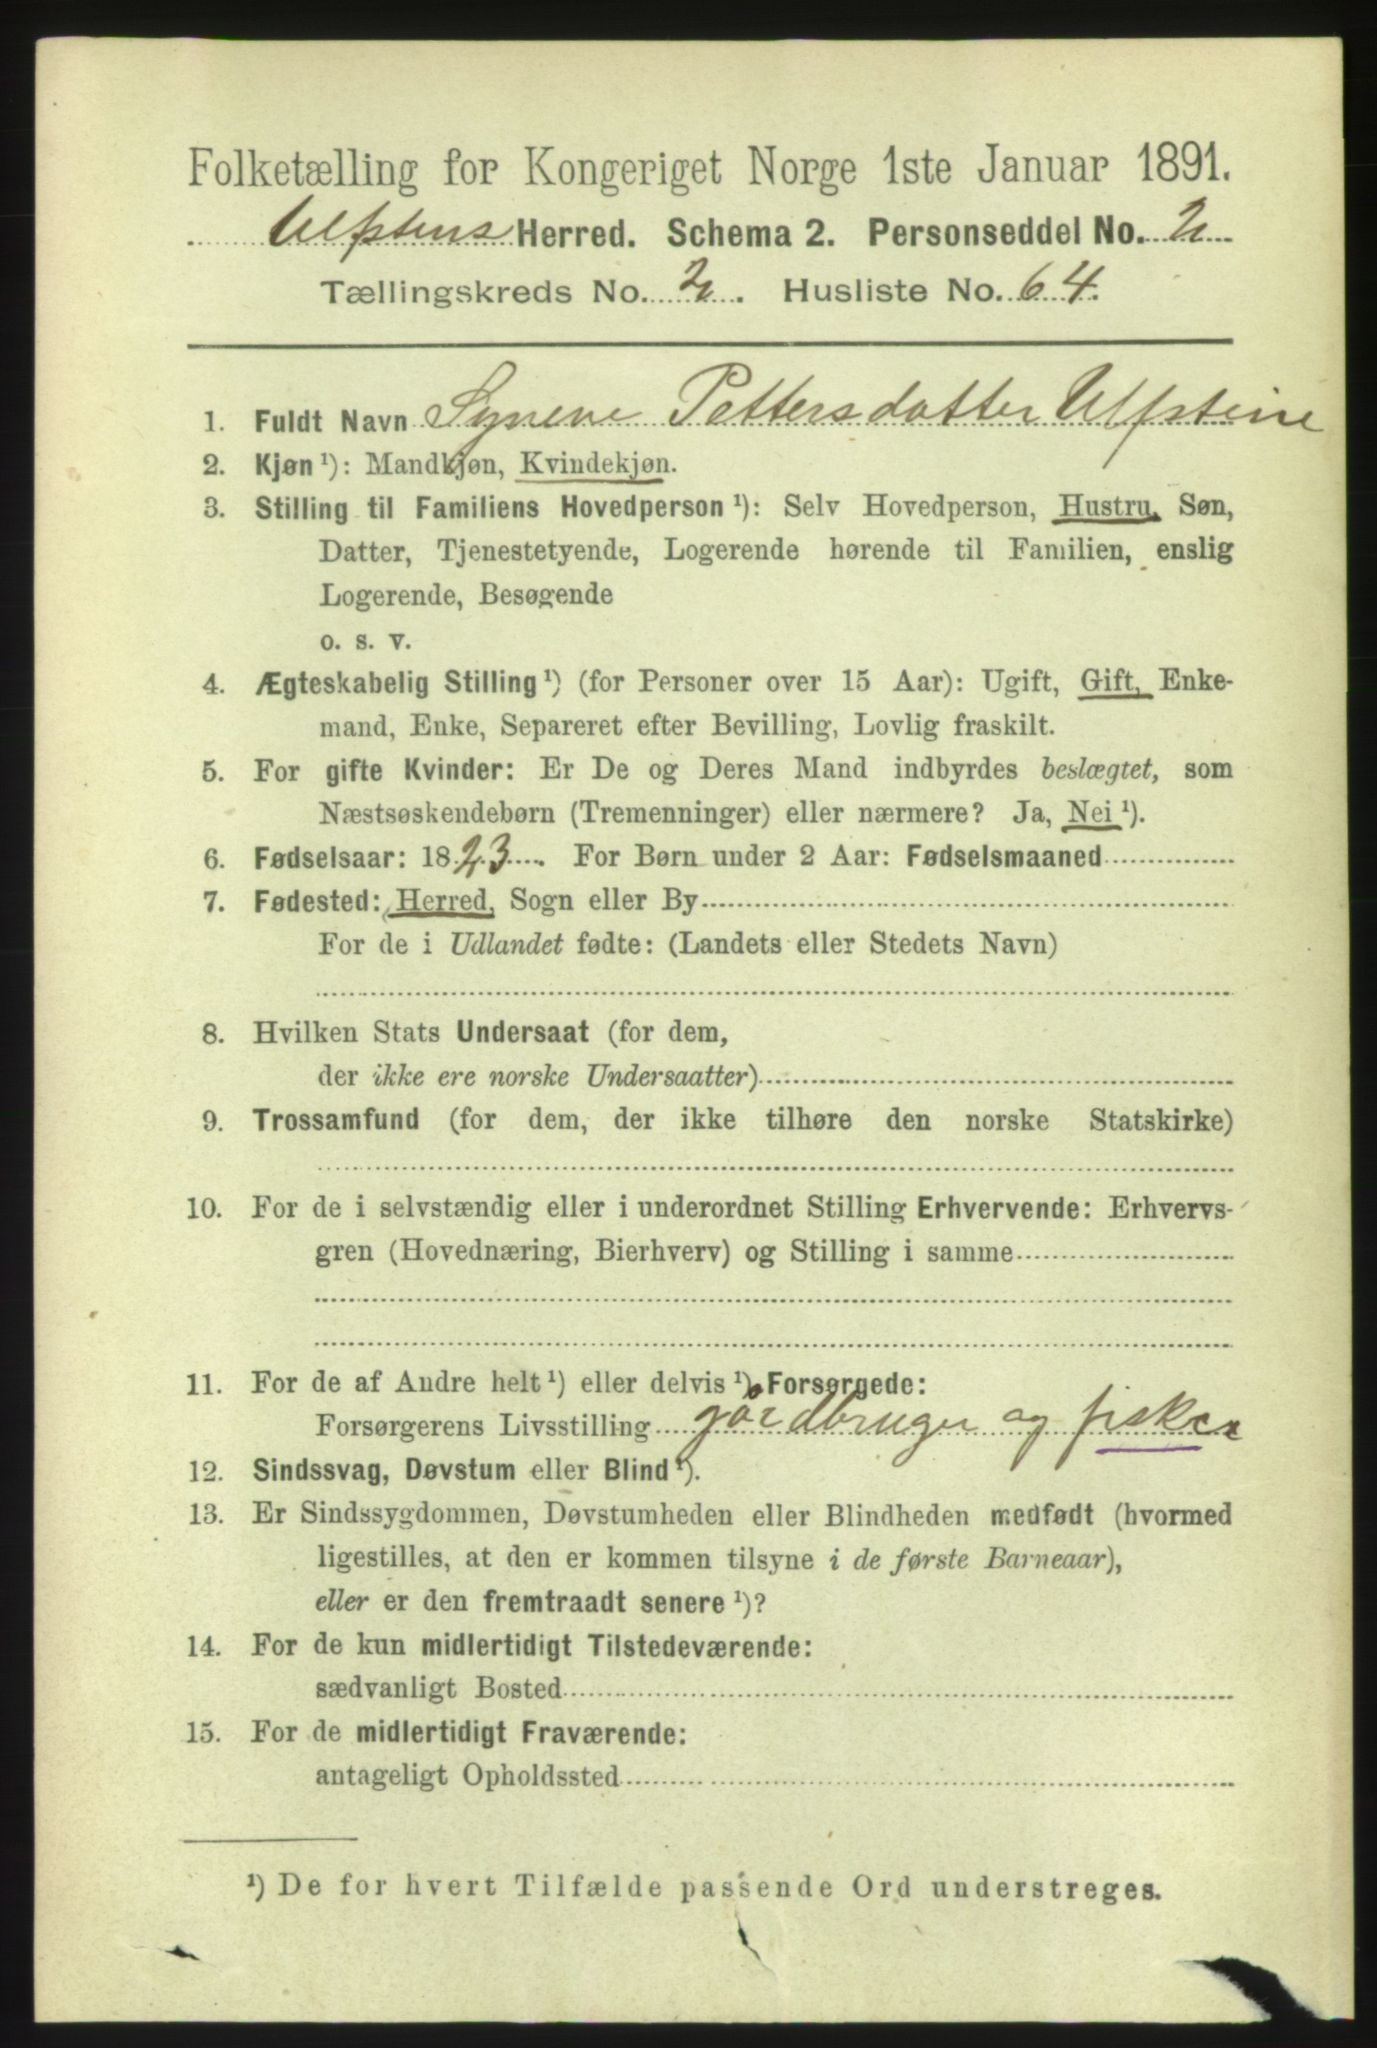 Folketælling for Kongeriget Norge 1ste Januar 1891.
Ulfstens Herred. Schema 2. Personseddel No. 2
Tællingskreds No. 2. Husliste No. 64.
1. Fuldt Navn Syneve Pettersdatter Ulfstein
2. Kjøn ¹): Mandkjøn, Kvindekjøn.
3. Stilling til Familiens Hovedperson ¹): Selv Hovedperson, Hustru, Søn,
Datter, Tjenestetyende, Logerende hørende til Familien, enslig
Logerende, Besøgende
o. s. v.
4. Ægteskabelig Stilling ¹) (for Personer over 15 Aar): Ugift, Gift, Enke-
mand, Enke, Separeret efter Bevilling, Lovlig fraskilt.
5. For gifte Kvinder: Er De og Deres Mand indbyrdes beslægtet, som
Næstsøskendebørn (Tremenninger) eller nærmere? Ja, Nei ¹).
6. Fødselsaar: 1823. For Børn under 2 Aar: Fødselsmaaned
7. Fødested: Herred, Sogn eller By
For de i Udlandet fødte: (Landets eller Stedets Navn)
8. Hvilken Stats Undersaat (for dem,
der ikke ere norske Undersaatter)
9. Trossamfund (for dem, der ikke tilhøre den norske Statskirke)
10. For de i selvstændig eller i underordnet Stilling Erhvervende: Erhvervs-
gren (Hovednæring, Bierhverv) og Stilling i samme
11. For de af Andre helt ¹) eller delvis ¹) Forsørgede:
Forsørgerens Livsstilling gårdbruger og fisker
12. Sindssvag, Døvstum eller Blind ¹).
13. Er Sindssygdommen, Døvstumheden eller Blindheden medfødt (hvormed
ligestilles, at den er kommen tilsyne i de første Barneaar),
eller er den fremtraadt senere ¹)?
14. For de kun midlertidigt Tilstedeværende:
sædvanligt Bosted
15. For de midlertidigt Fraværende:
antageligt Opholdssted
¹) De for hvert Tilfælde passende Ord understreges.